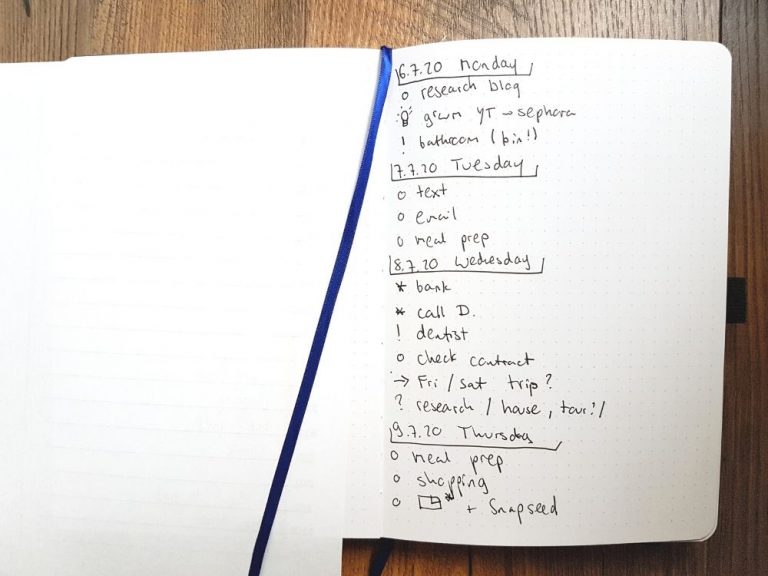 6.7.20 Monday
o research blog
grwm YT → sephora
! bathroom (bin!)
7.7.20 Tuesday
o text
o email
o meal prep
8.7.20 Wednesday
* bank
* call D.
! dentist
o check contract
→ Fri / sat trip?
? research / house, tour?/
9.7.20 Thursday
o meal prep
o shopping
o * + Snapseed